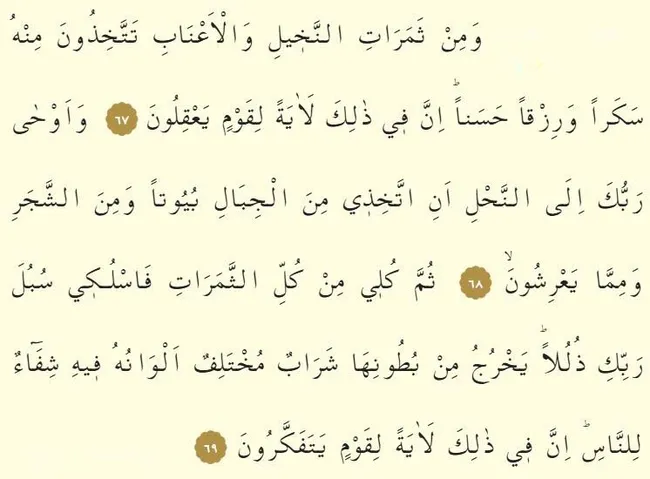 وَمِنْ ثَمَرَاتِ النَّخ۪يلِ وَالْاَعْنَابِ تَتَّخِذُونَ مِنْهُ
سَكَراً وَرِزْقاً حَسَناًۜ اِنَّ ف۪ي ذٰلِكَ لَاٰيَةً لِقَوْمٍ يَعْقِلُونَ ﴿٦٧﴾ وَاَوْحٰى
رَبُّكَ اِلَى النَّحْلِ اَنِ اتَّخِذ۪ي مِنَ الْجِبَالِ بُيُوتاً وَمِنَ الشَّجَرِ
وَمِمَّا يَعْرِشُونَۙ ﴿٦٨﴾ ثُمَّ كُل۪ي مِنْ كُلِّ الثَّمَرَاتِ فَاسْلُك۪ي سُبُلَ
رَبِّكِ ذُلُلاًۜ يَخْرُجُ مِنْ بُطُونِهَا شَرَابٌ مُخْتَلِفٌ اَلْوَانُهُ ف۪يهِ شِفَٓاءٌ
لِلنَّاسِۜ اِنَّ ف۪ي ذٰلِكَ لَاٰيَةً لِقَوْمٍ يَتَفَكَّرُونَ ﴿٦٩﴾